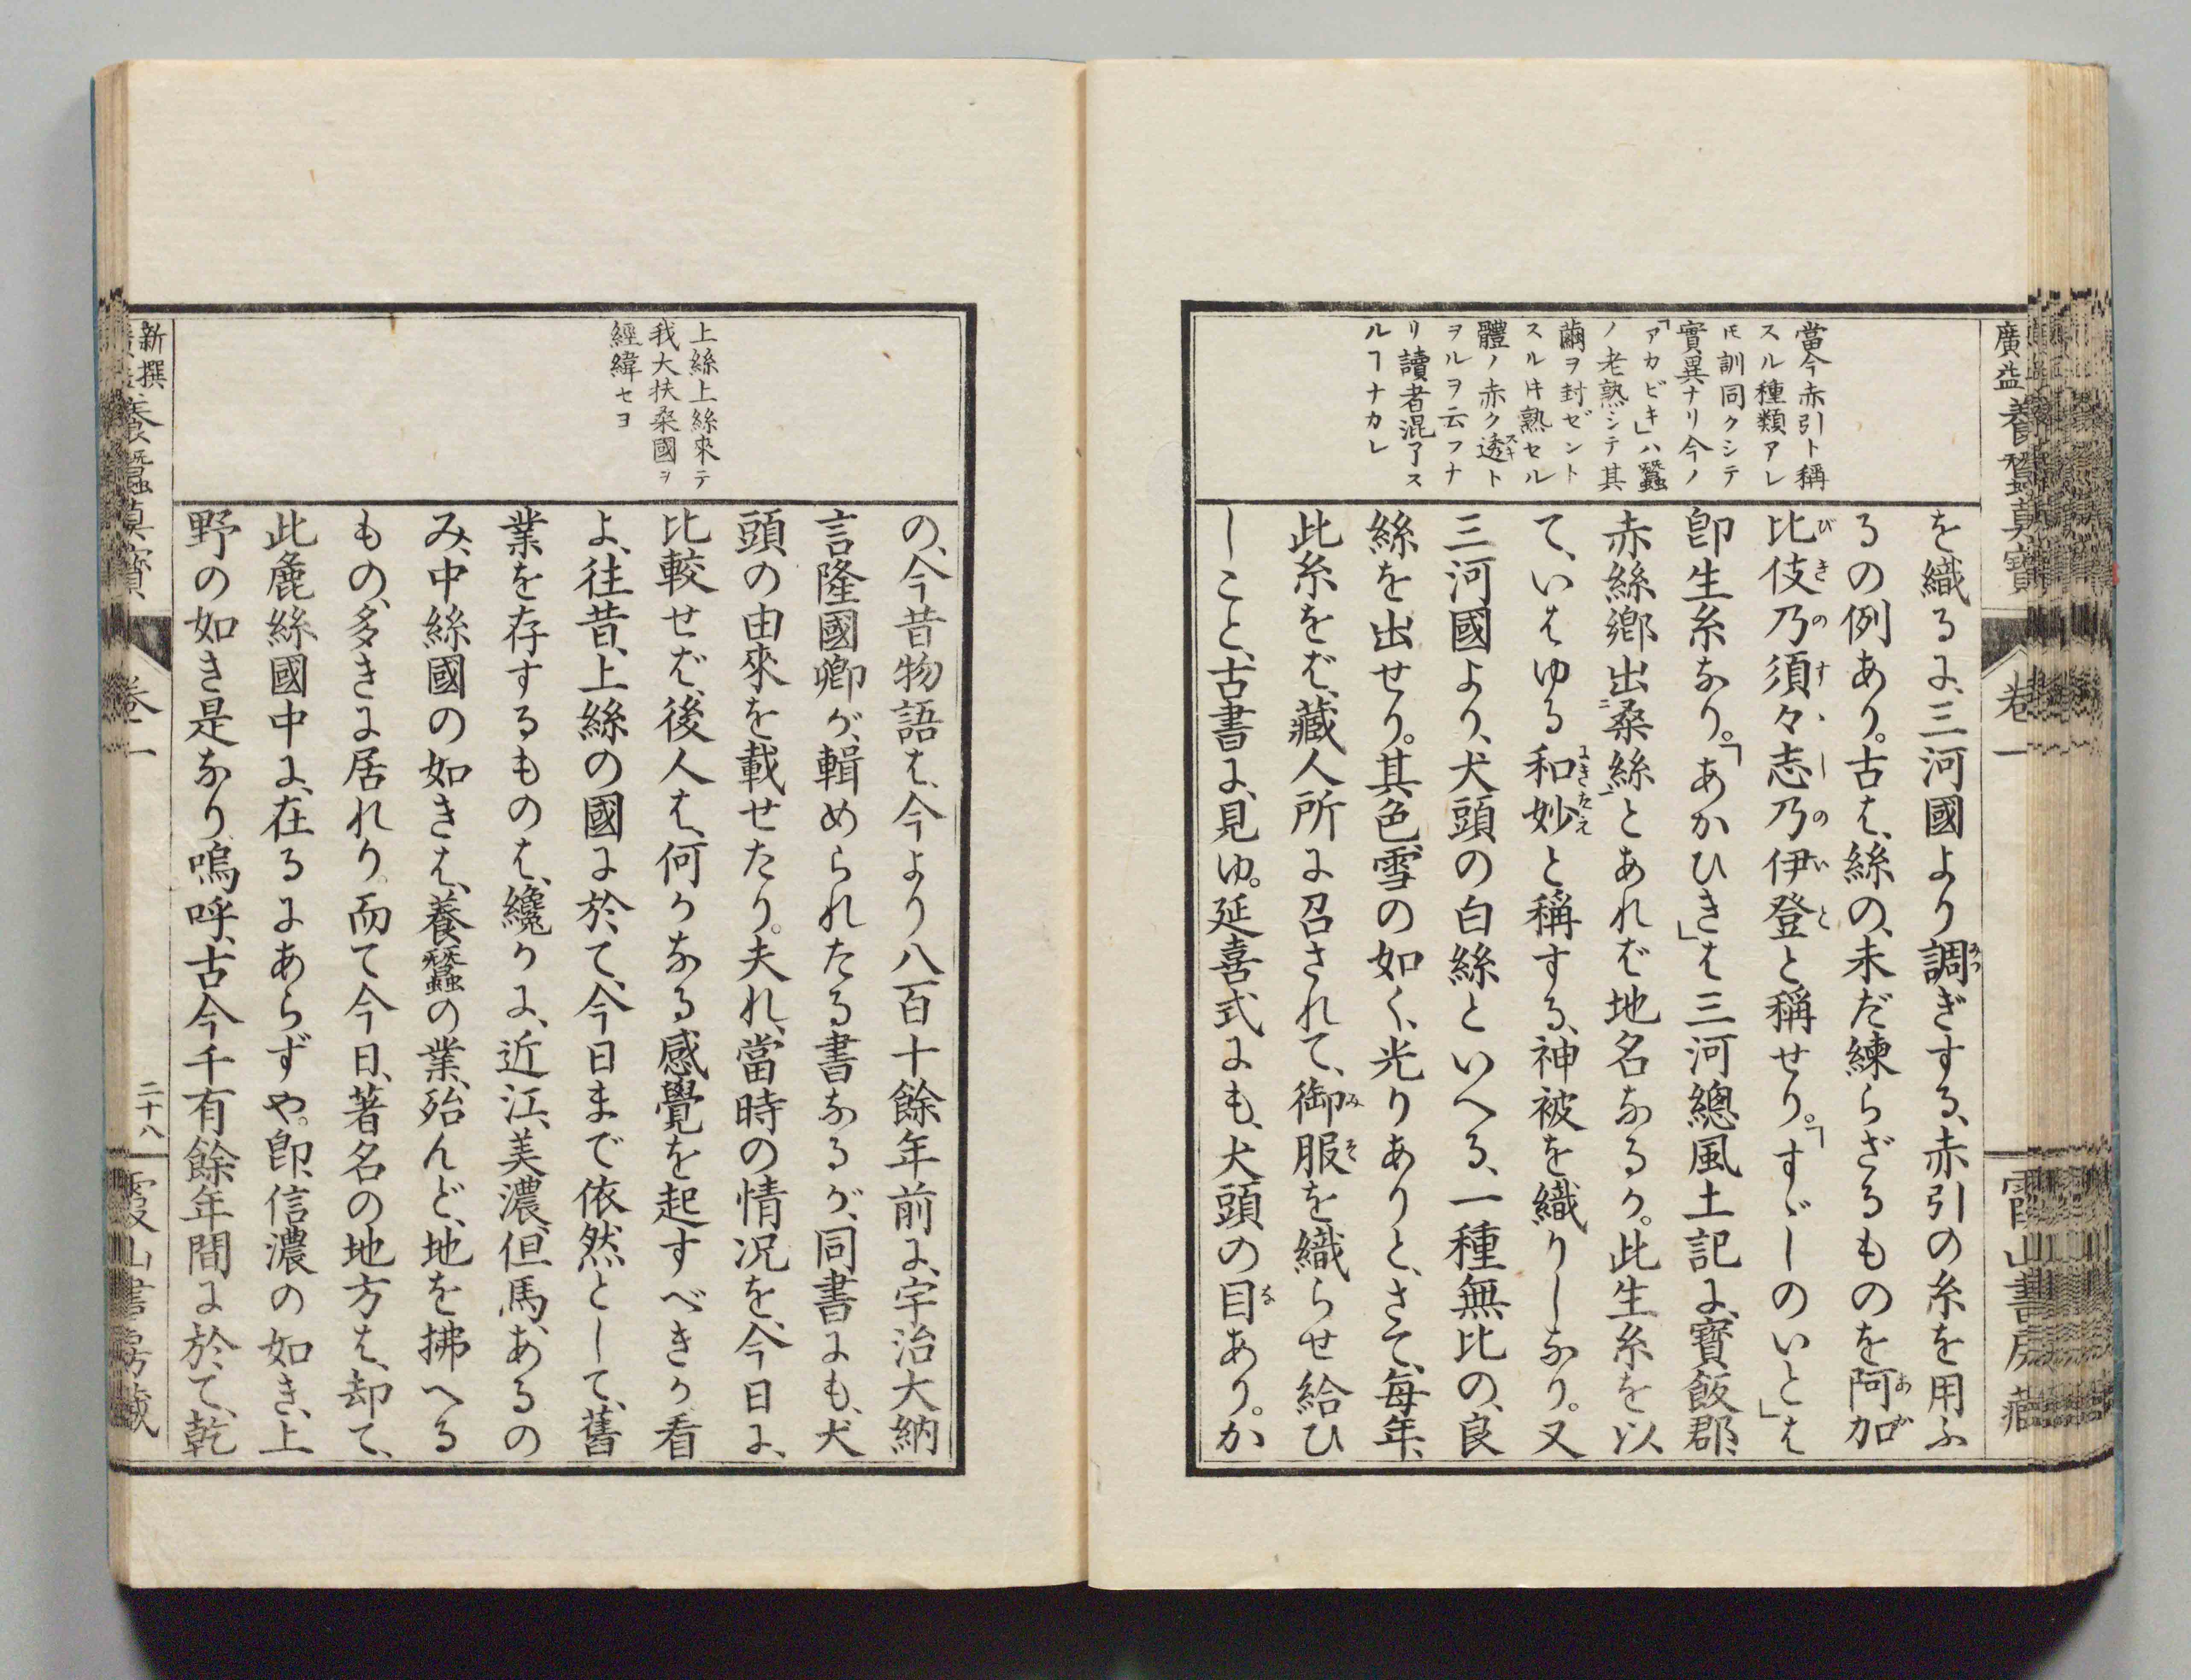 廣益養蠶真寶
卷一
霞山書房藏
當今赤引ト稱
スル種類アレ
𪜈訓同クシテ
實異ナリ今ノ
「アカビキ」ハ蠶
ノ老熟シテ其
繭ヲ封ゼント
スル𪜈熟セル
體ノ赤ク透スキト
ヲルヲ云フナ
リ讀者混了ス
ルヿナカレ
を織るに、三河國より調みつぎする、赤引の糸を用ふ
るの例あり。古は、絲の、未だ練らざるものを阿あ加か
比び伎き乃の須す々ゝ志し乃の伊い登とと稱せり。「すゞしのいと」は
卽生糸なり。「あかひき」は三河總風土記に、寶飯郡、
赤絲鄕出ニ桑絲一とあれば地名なるか。此生糸を以
て、いはゆる和妙にきたえと稱する、神被を織りしなり。又
三河國より、犬頭の白絲といへる、一種無比の、良
絲を出せり。其色雪の如く、光りありと、さて、每年、
此糸をば、藏人所に召されて、御み服そを織らせ給ひ
しこと、古書に、見ゆ。延喜式にも、犬頭の目なあり。か
上絲上絲來テ
我大扶桑國ヲ
經緯セヨ
の、今昔物語は、今より八百十餘年前に、宇治大納
言隆國卿が、輯められたる書なるが、同書にも、犬
頭の由來を載せたり。夫れ、當時の情况を、今日に、
比較せば、後人は、何かなる感覺を起すべきか看
よ、往昔、上絲の國に於て、今日まで依然として、舊
業を存するものは、纔かに、近江、美濃、但馬、あるの
み、中絲國の如きは、養蠶の業、殆んど、地を拂へる
もの、多きに居れり。而て今日、著名の地方は、却て、
此麁絲國中に、在るにあらずや。卽、信濃の如き、上
野の如き是なり嗚呼、古今千有餘年間に於て、乾
新撰
養蠶真寶
卷一
二十八
霞山書房藏